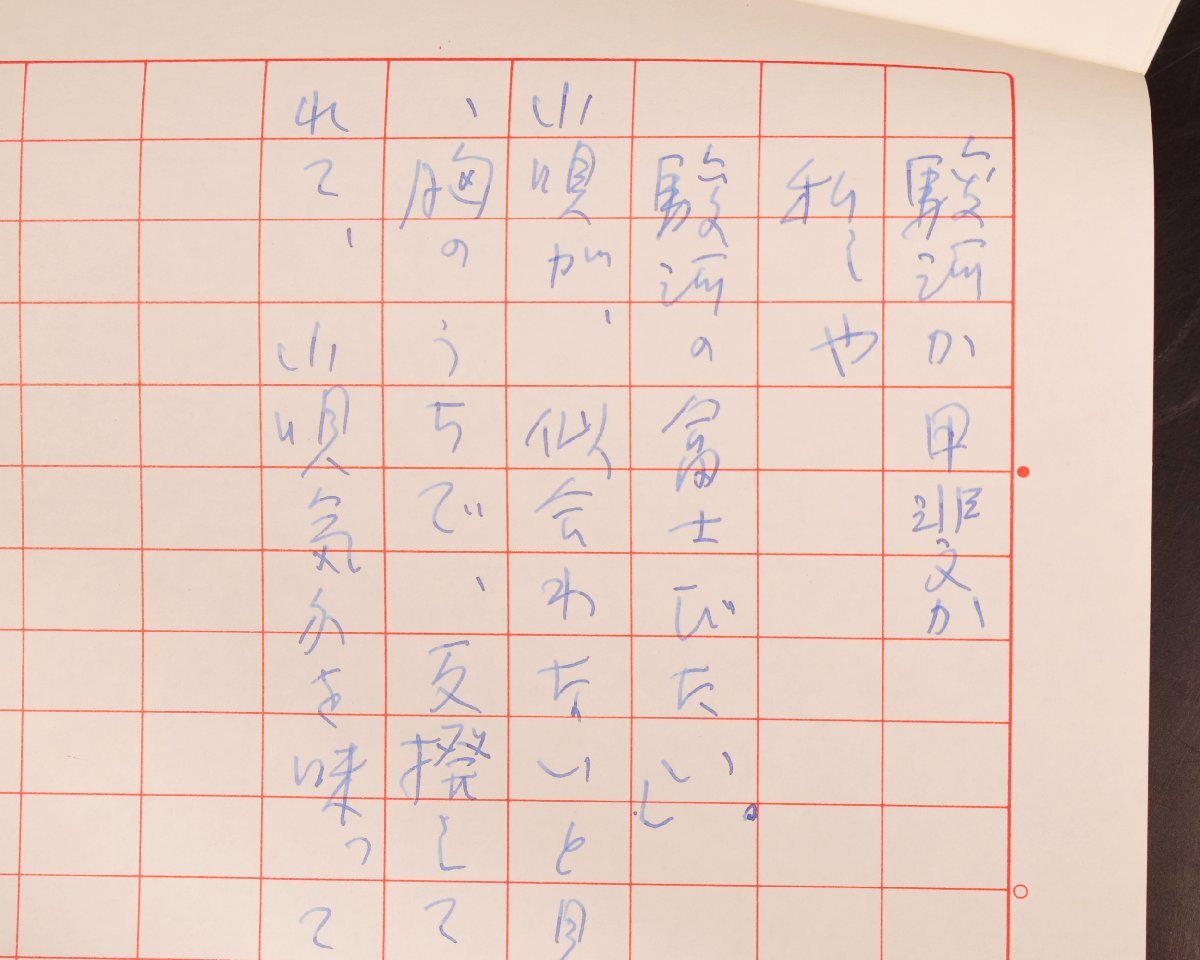 駿河か甲斐か
私しや
駿河の富士びたい。
小唄が、似会わないと見
、胸のうちで、反撥して
れて、小唄気分を味って